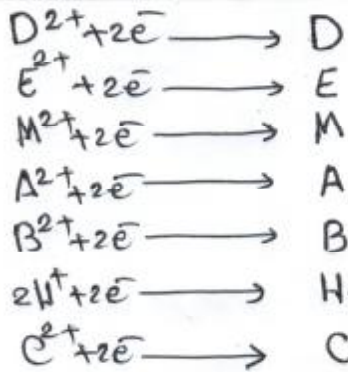 D²⁺+2ē ⟶ D
E²⁺+2ē ⟶ E
M²⁺+2ē ⟶ M
A²⁺+2ē ⟶ A
B²⁺+2ē ⟶ B
2H⁺+2ē ⟶ H
C²⁺+2ē ⟶ C